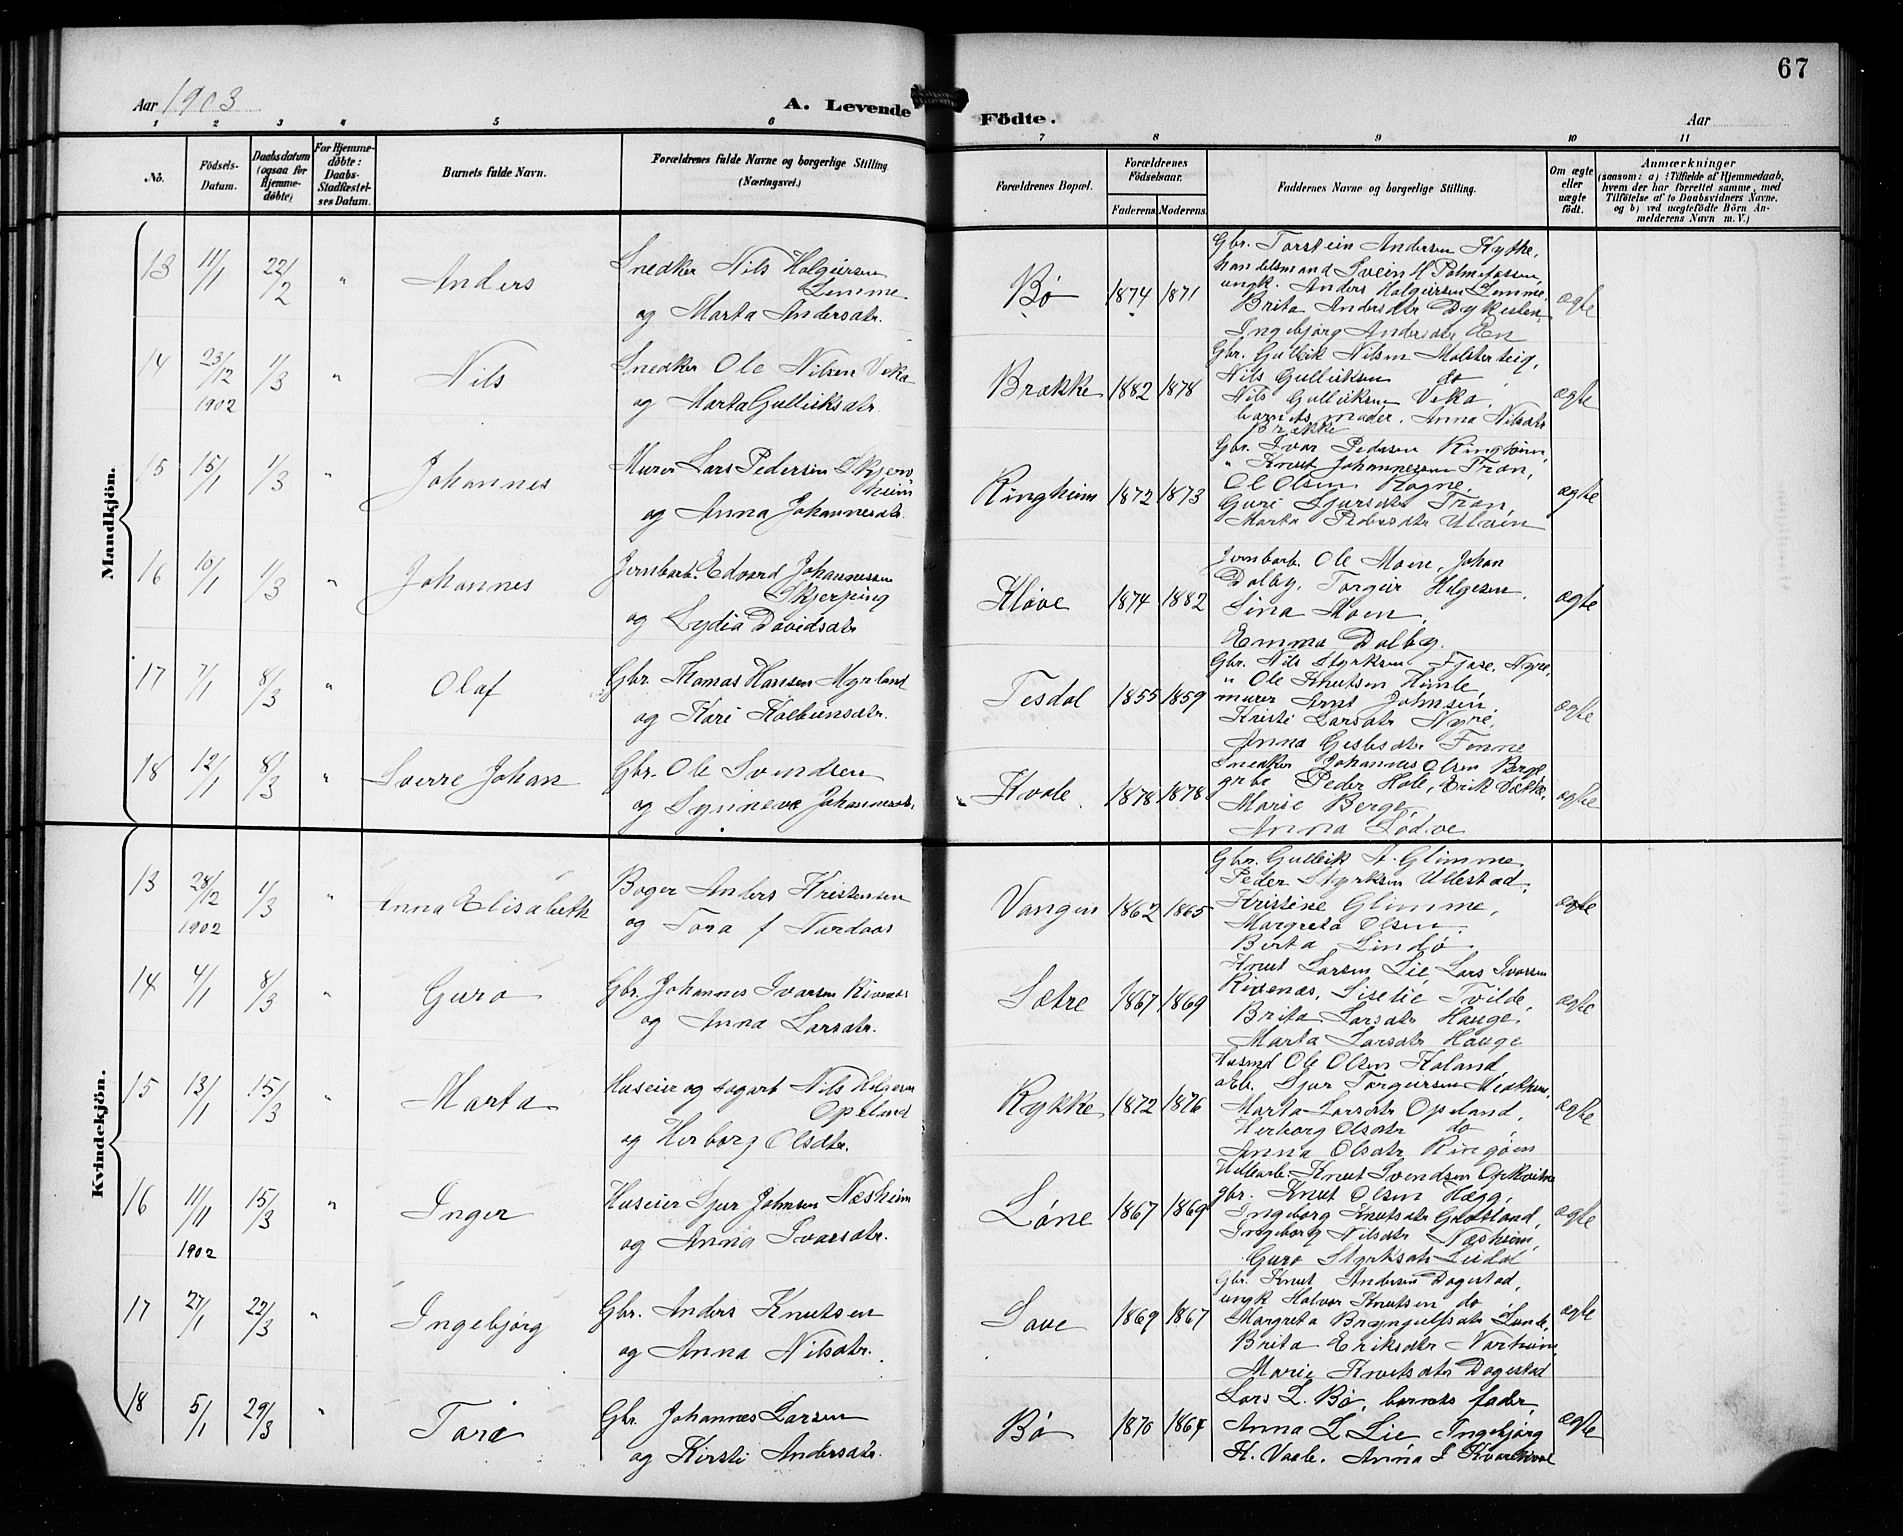 67
Aar 1903
A. Levende Födte.
Aar
1 2 3 4 5 6 7 8 9 10 11
No.
Födsels-Datum.
Daabsdatum (ogsaa for Hjemmedöbte)
For Hjemmedöbte: Daabs-Stadfæstelses Datum.
Barnets fulde Navn.
Forældrenes fulde Navne og borgerlige Stilling. (Næringsvei.)
Forældrenes Bopæl.
Forældrenes Födselsaar.
Faderens. Moderens.
Faddernes Navne og borgerlige Stilling.
Om ægte eller uægte födt.
Anmærkninger
(saasom: a) i Tilfælde af Hjemmedaab,
hvem der har forrettet samme, med
Tilföielse af to Daabsvidners Navne,
og b) ved uægtefödte Börn An-
melderens Navn m. V.)
Mandkjön.
13 11/1 22/2 " Anders
Snedker Nils Holgeirsen
Lemme
og Marta Andersdtr.
Bø 1874 1871
Gbr. Torstein Andersen Kythe,
handelsmand Svein
ungk. Anders Holgeirsen Lemme,
Brita Andersdtr Dykesten,
Ingebjørg Andersdtr En
ægte
14 23/12 1902 1/3 " Nils
Snedker Ole Nilsen Veka
og Marta Gulliksdtr.
Brække 1882 1878
Gbr. Gullik Nilsen Molsterteig,
Nils Gulliksen do
Nils Gulliksen Veka,
barnets moder, Anna Nilsdtr
Brække
ægte
15 15/1 1/3 " Johannes
Murer Lars Pedersen Skjerv
heim
og Anna Johannesdtr.
Ringheim 1872 1873
Gbr. Ivar Pedersen Ringheim,
" Knut Johannessen Tron,
Ol Olsen Rogne,
Guri Sjursdtr Tron,
Marta Pedersdtr Ulvin
ægte
16 10/1 1/3 " Johannes
Jernbarb. Edvard Johannessen
Skjerping
og Lydia Davidsdtr
Kløve 1874 1882
Jernbarb. Ole Moen, Johan
Dalby, Torgeir Helgesen,
Sina Moen,
Emma Dalby.
ægte
17 7/1 8/3 " Olaf
Gbr. Thomas Hansen Myrland
og Kari Kolbeinsdtr.
Tesdal 1855 1859
Gbr. Nils Styrksen Fjose, Nyre,
" Ole Knutsen Himle,
murer Arnt Johnsen,
Kristi Larsdtr Nyre,
Anna Fenne
ægte
18 12/1 8/3 " Sverre Johan
Gbr. Ole Svendsen
og Synneva Johannesdtr.
Kvale 1878 1878
Snedker Johannes Olsen Berge
grbr Peder Hole, Erik
Marie Berge,
Anna Lødve
ægte
Kvindekjön.
13 28/12 1902 1/3 " Anna Elisabeth
Bager Anders Kristensen
og Tora f Nordaas
Vangen 1862 1865
Gbr. Gullik A. Glimme,
Peder Styrksen Ullestad,
Kristine Glimme,
Margreta Olsen,
Berta Lindø.
ægte
14 4/1 8/3 " Guro
Gbr. Johannes Ivarsen Rivenes
og Anna Larsdtr.
Sætre 1867 1869
Knut Larsen Lie, Lars Ivarsen
Rivenæs, Tvilde,
Brita Larsdtr Hauge,
Marta Larsdtr Hauge
ægte
15 13/1 15/3 " Marta
Huseier og Nils Helgesen
Opeland
og Herborg Olsdtr.
Rykke 1872 1876
Husmd Ole Olsen Høland,
arb. Sjur Torgeirsen
Marta Larsdtr Opeland,
Herborg Olsdtr do,
Anna Olsdtr Ringøen
ægte
16 11/11 1902 15/3 " Inger
Huseier Sjur Johnsen Næsheim
og Anna Ivarsdtr.
Løne 1867 1869
Knut Svendsen
gbr. Knut Olsen Hægg,
Ingeborg Knutsdtr Grotland,
Ingeborg Nilsdtr Næsheim,
Guro Styrksdtr
ægte
17 27/1 22/3 " Ingebjørg
Gbr. Anders Knutsen
og Anna Nilsdtr.
Saue 1869 1867
Gbr. Knut Andersen Dagestad,
ungk Halvor Knutsen do
Margreta Brynjulfsdtr Lunde,
Brita Eriksdtr Norheim,
Marie Knutsdtr Dagestad
ægte
18 5/1 29/3 " Tora
Gbr. Johannes Larsen
og Kirsti Andersdtr.
Bø 1870 1864
Lars L. Bø, barnets fader,
Anna L. Lie, Ingebjørg
K. Anna
ægte